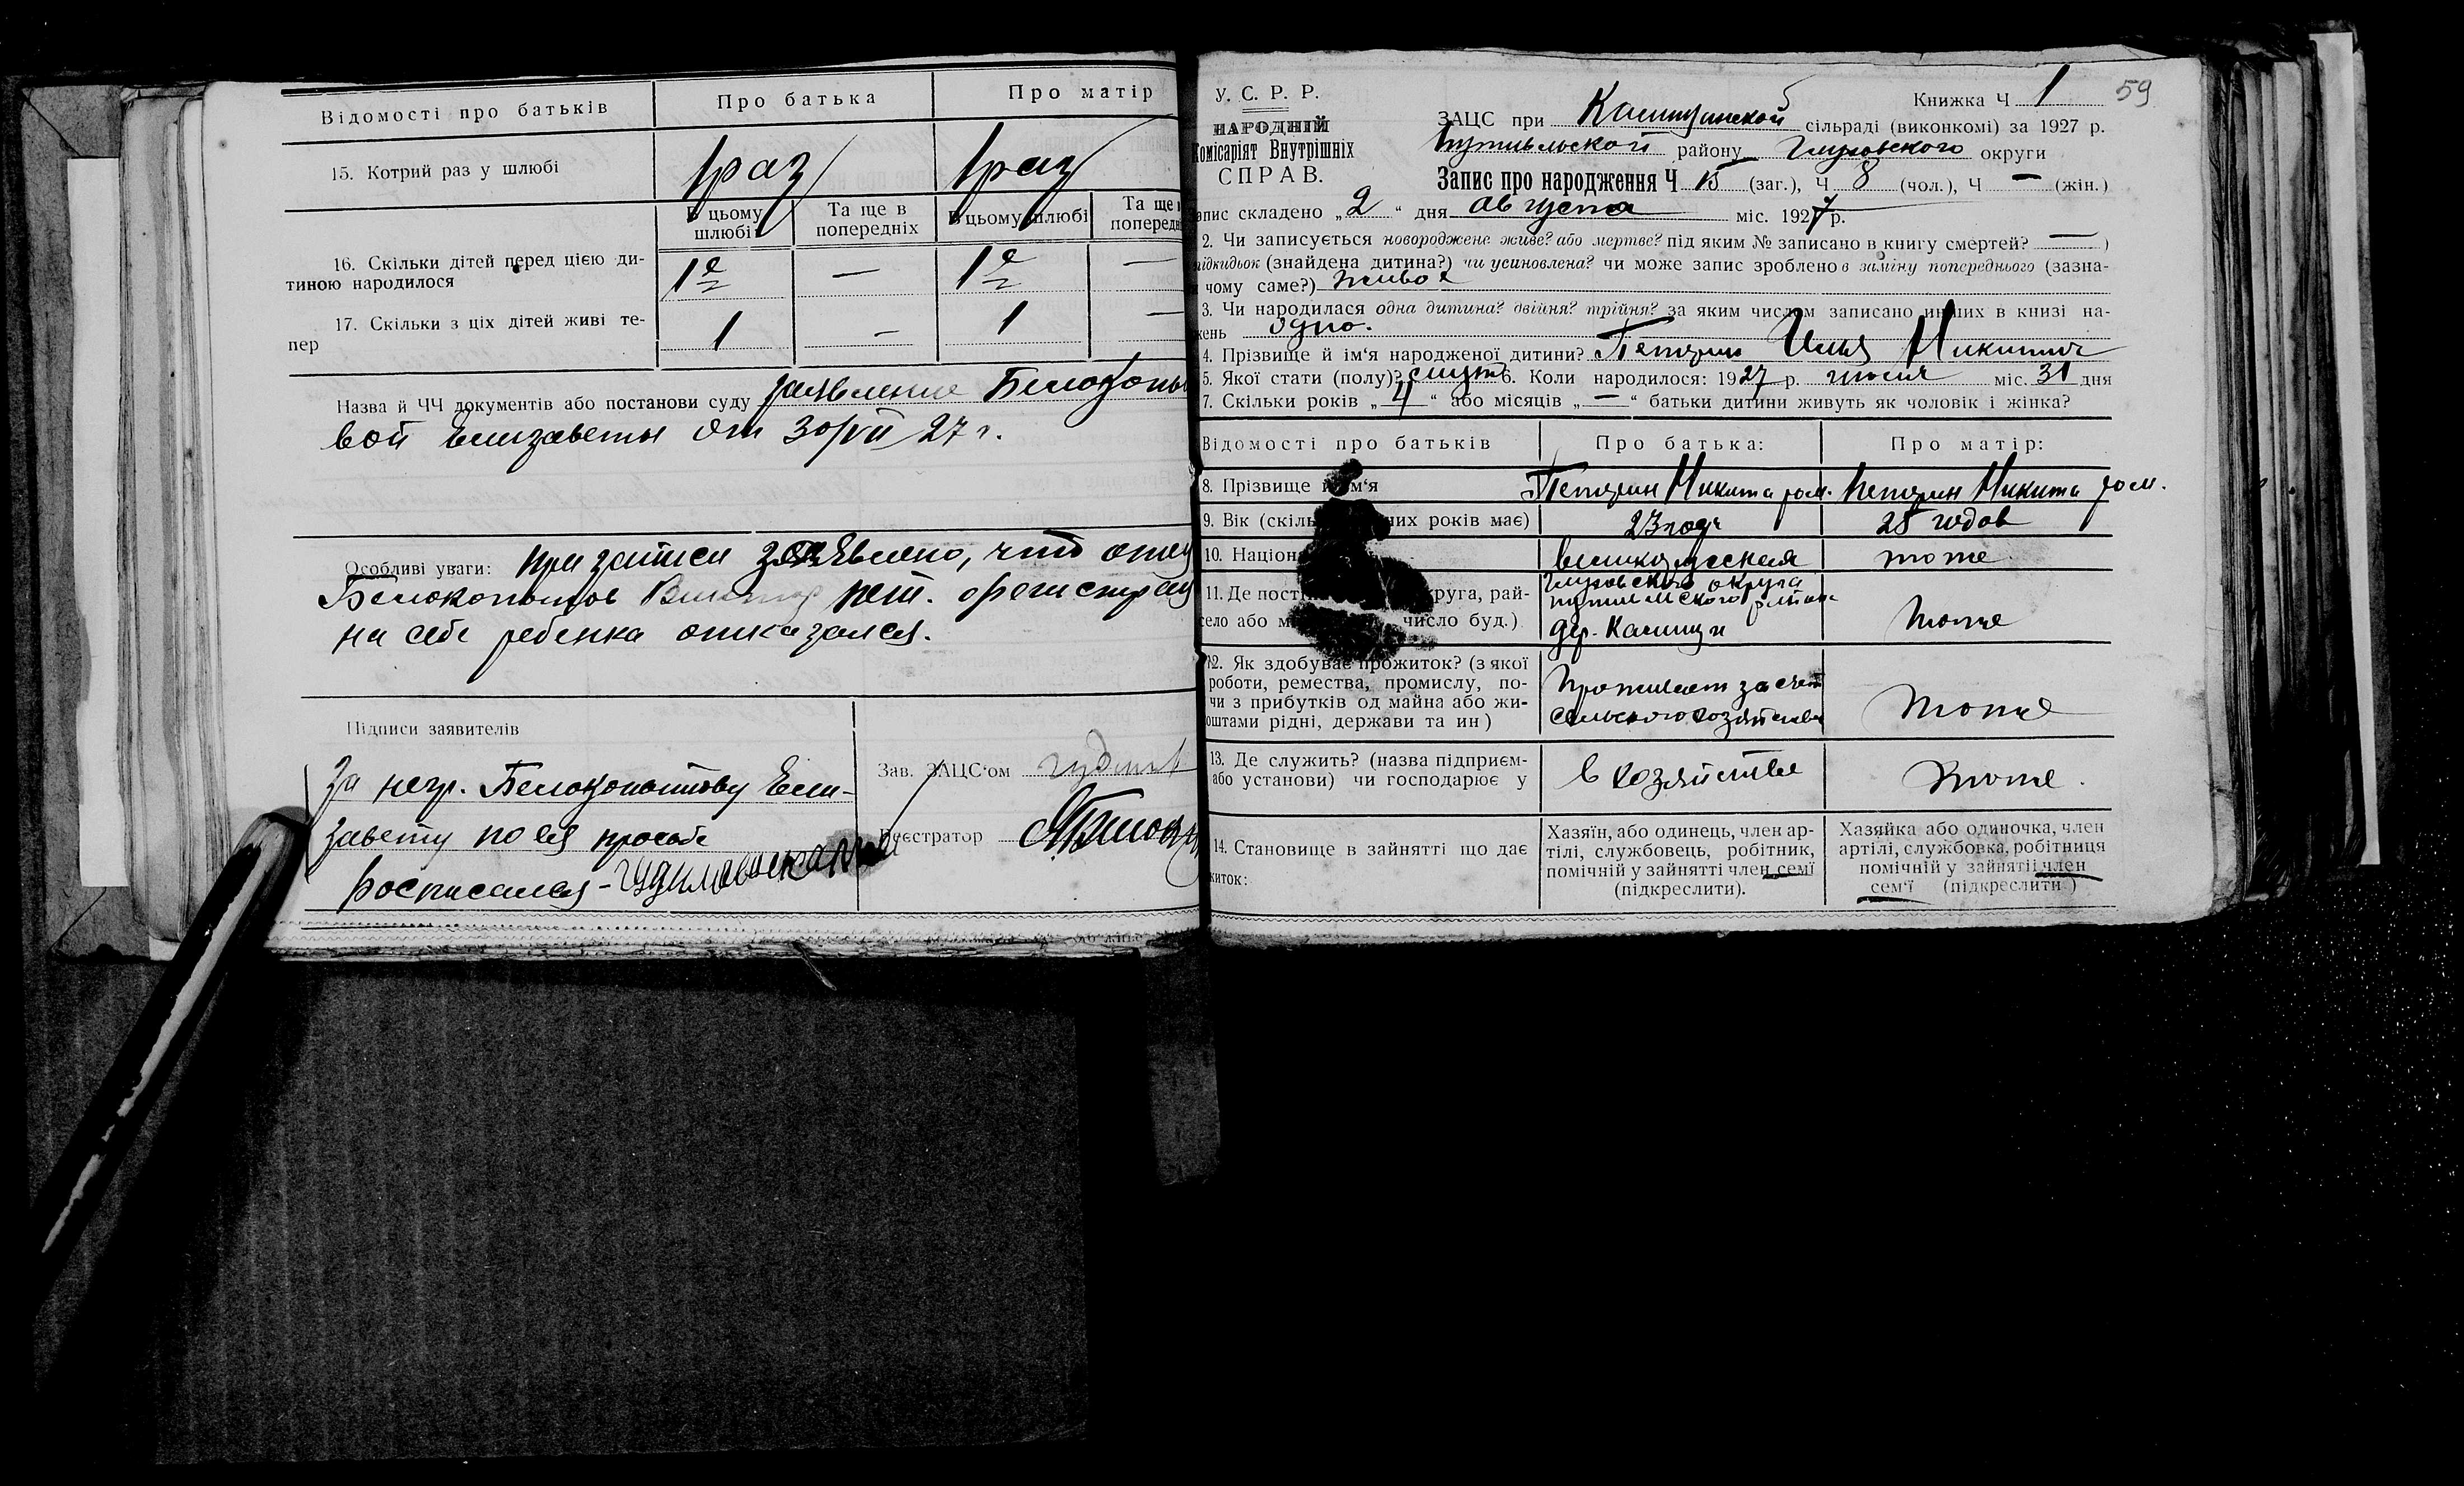 Відомості про батьків
Про батька
Про матір
15. Котрий раз у шлюбі
1 раз
1 раз
В цьому шлюбі
Та ще в попередніх
В цьому шлюбі
Та ще
попередн
16. Скільки дітей перед цією ди-
тиною народилося
1е
—
1е
—
17. Скільки з ціх дітей живі те-
пер
1
—
1
—
Назва й ЧЧ документів або постанови суду заявление Белокопы
вой Елизаветы от 30/VII 27 г.
Особливі уваги: При записи заявлено, что отец
Белокопытов регистрац
на себе ребенка отказался.
Підписи заявителів
За негр. Белокопытову Ели-
завету по ея просьбе
росписался -
Зав. ЗАЦС'ом
Реєстратор
59
У. С. Р. Р.
НАРОДНІЙ
Комісаріят Внутрішніх
СПРАВ.
Книжка Ч 1
ЗАЦС при сільраді (виконкомі) за 1927 р.
Путивльской району Глуховского округи
Запис про народження Ч 15 (заг.), Ч 8 (чол.), Ч — (жін.)
апис складено „2“ дня августа міс. 1927 р.
2. Чи записується новороджене живе? або мертве? під яким № записано в книгу смертей? — )
підкидьок (знайдена дитина?) чи усиновлена? чи може запис зроблено в заміну попереднього (зазна-
чому саме?) живое
3. Чи народилася одна дитина? двійня? трійня? за яким числом записано инших в книзі на-
жень одно.
4. Прізвище й ім'я народженої дитини? Петрин Илья Никитич
5. Якої стати (полу)? 6. Коли народилося: 1927 р. июля міс. 31 дня
7. Скільки років „4“ або місяців „—“ батьки дитини живуть як чоловік і жінка?
Відомості про батьків
Про батька:
Про матір:
8. Прізвище й ім'я
Петрин Никита
Петрин Никита
9. Вік (скіль них років має)
23 года
25 годов
10. Націон
великорусская
тоже
11. Де пост круга, рай-
село або м число буд.)
Глуховского округа
Путивльского района
дер. Калищи
тоже
12. Як здобуває прожиток? (з якої
роботи, ремества, промислу, по-
чи з прибутків од майна або жи-
оштами рідні, держави та ин)
Проживает за счет
сельского хозяйства
тоже
13. Де служить? (назва підприєм-
або установи) чи господарює у
в хозяйстве
тоже.
14. Становище в зайнятті що дає
житок:
Хазяїн, або одинець, член ар-
тілі, службовець, робітник,
помічній у зайнятті член семї
(підкреслити).
Хазяйка або одиночка, член
артілі, службовка, робітниця
помічній у зайнятіі член
сем'ї (підкреслити)